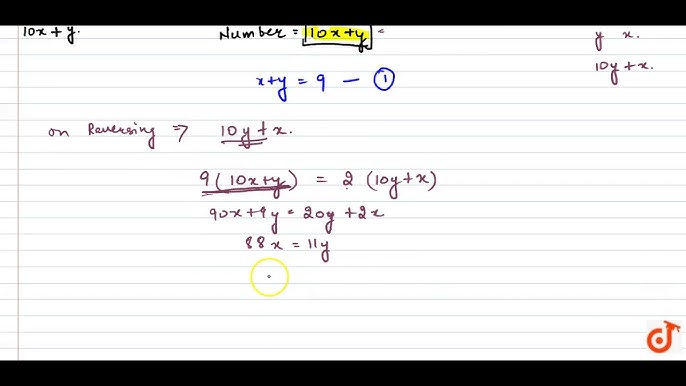 10x+y.
Number = 10x+y =
y x.
10y+x.
x+y = 9 — ①
on Reversing ⇒ 10y+x.
9(10x+y) = 2(10y+x)
90x+9y = 20y+2x
88x = 11y